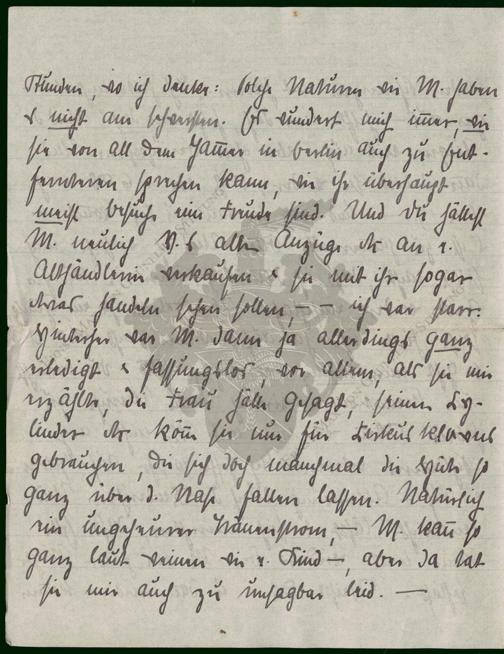 Stunden, wo ich denke: Solche Naturen wie M. haben
es nicht am schwersten. Es wundert mich immer, wie
sie von all dem Jammer in Berlin auch zu Ent-
fernteren sprechen kann, wie ihr überhaupt
meist Besuche eine Freude sind. Und Du hättest
M. neulich V.s alte Anzüge etc an e.
Althändlerin verkaufen & sie mit ihr sogar
etwas handeln sehen sollen, – – ich war starr.
Hinterher war M. dann ja allerdings ganz
erledigt & fassungslos, vor allem, als sie mir
erzählte, die Frau hätte gesagt, seinen Cy-
linder etc könne sie nur für Zirkusklowns
gebrauchen, die sich doch manchmal die Hüte so
ganz über d. Nase fallen lassen. Natürlich
ein ungeheurer Tränenstrom, – M. kann so
ganz laut weinen wie e. Kind –, aber da tat
sie mir auch zu unsagbar leid. –